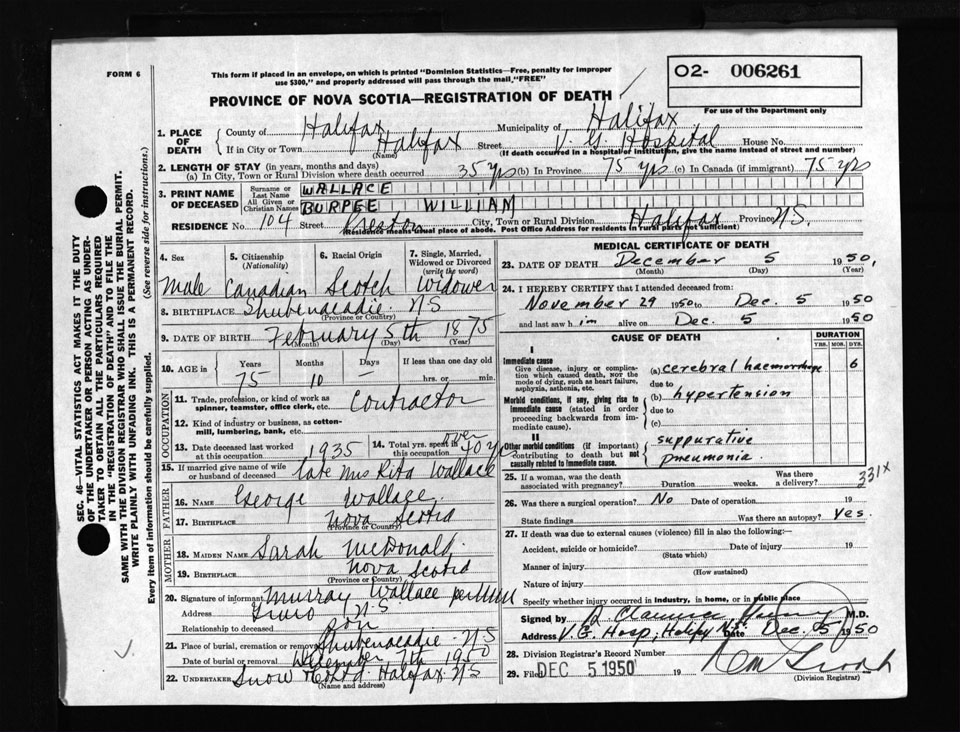 FORM 6
This form if placed in an envelope, on which is printed "Dominion Statistics—Free, penalty for improper
use $300," and properly addressed will pass through the mail, "FREE"
O2- 006261
For use of the Department only
PROVINCE OF NOVA SCOTIA—REGISTRATION OF DEATH
1. PLACE OF DEATH
County of Halifax Municipality of Halifax
If in City or Town Halifax (Name) Street V. G. Hospital House No.
(If death occurred in a hospital or institution, give the name instead of street and number)
2. LENGTH OF STAY (in years, months and days)
(a) In City, Town or Rural Division where death occurred 35 yrs (b) In Province 75 yrs (c) In Canada (if immigrant) 75 yrs
3. PRINT NAME OF DECEASED
Surname or Last Name WALLACE
All Given or Christian Names BURPEE WILLIAM
RESIDENCE No. 104 Street Preston City, Town or Rural Division Halifax Province N.S.
(Residence means usual place of abode. Post Office Address for residents in rural parts not sufficient)
4. Sex Male
5. Citizenship (Nationality) Canadian
6. Racial Origin Scotch
7. Single, Married, Widowed or Divorced (write the word) Widower
8. BIRTHPLACE Shubenacadie NS
(Province or Country)
9. DATE OF BIRTH February 5th 1875
(Month) (Day) (Year)
10. AGE in Years 75 Months 10 Days – If less than one day old hrs. or min.
OCCUPATION
11. Trade, profession, or kind of work as spinner, teamster, office clerk, etc. Contractor
12. Kind of industry or business, as cotten-mill, lumbering, bank, etc.
13. Date deceased last worked at this occupation 1935
14. Total yrs. spent in this occupation over 40 yrs
15. If married give name of wife or husband of deceased late Mrs Rita Wallace
FATHER
16. NAME George Wallace
17. BIRTHPLACE Nova Scotia
(Province or Country)
MOTHER
18. MAIDEN NAME Sarah McDonald
19. BIRTHPLACE Nova Scotia
(Province or Country)
20. Signature of informant Murray Wallace per
Address Truro N.S.
Relationship to deceased son
21. Place of burial, cremation or removal Shubenacadie - NS
Date of burial or removal December 7th 1950
22. UNDERTAKER Snow & Co Ltd. Halifax NS
(Name and address)
MEDICAL CERTIFICATE OF DEATH
23. DATE OF DEATH December 5 1950.
(Month) (Day) (Year)
24. I HEREBY CERTIFY that I attended deceased from:
November 29 1950 to Dec. 5 1950
and last saw him alive on Dec. 5 1950
CAUSE OF DEATH
DURATION
YRS. MOS. DYS.
I
Immediate cause
Give disease, injury or complication which caused death, NOT the mode of dying, such as heart failure, asphyxia, asthenia, etc.
(a) cerebral haemorrhage 6
due to
Morbid conditions, if any, giving rise to immediate cause (stated in order proceeding backwards from immediate cause).
(b) hypertension
due to
(c)
II
Other morbid conditions (if important) contributing to death but not causally related to immediate cause.
suppurative
pneumonia.
331X
25. If a woman, was the death associated with pregnancy? Duration weeks. Was there a delivery?
26. Was there a surgical operation? No Date of operation 19
State findings Was there an autopsy? Yes.
27. If death was due to external causes (violence) fill in also the following:—
Accident, suicide or homicide? Date of injury 19
(State which)
Manner of injury
(How sustained)
Nature of injury
Specify whether injury occurred in Industry, in home, or in public place
Signed by Clarence M.D.
Address V.G. Hosp, Halifax N.S. Date Dec. 5 1950
28. Division Registrar's Record Number
29. Filed DEC 5 1950 19
(Division Registrar)
SEC. 46—VITAL STATISTICS ACT MAKES IT THE DUTY
OF THE UNDERTAKER OR PERSON ACTING AS UNDER-
TAKER TO OBTAIN ALL THE PARTICULARS REQUIRED
IN THE "REGISTRATION OF DEATH" AND TO FILE THE
SAME WITH THE DIVISION REGISTRAR WHO SHALL ISSUE THE BURIAL PERMIT.
WRITE PLAINLY WITH UNFADING INK. THIS IS A PERMANENT RECORD.
Every item of information should be carefully supplied. (See reverse side for instructions.)